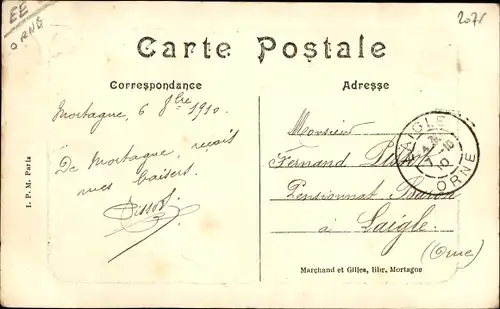 EE
ORNE
2071
Carte Postale
Correspondance
Adresse
Mortagne, 6 8bre 1910.
De Mortagne, reçoit
mes baisers.
Monsieur
Fernand
Pensionnat Baron
à Laigle
(Orne)
LAIGLE
7-10
10
ORNE
I. P. M. Paris
Marchand et Gilles, libr. Mortagne